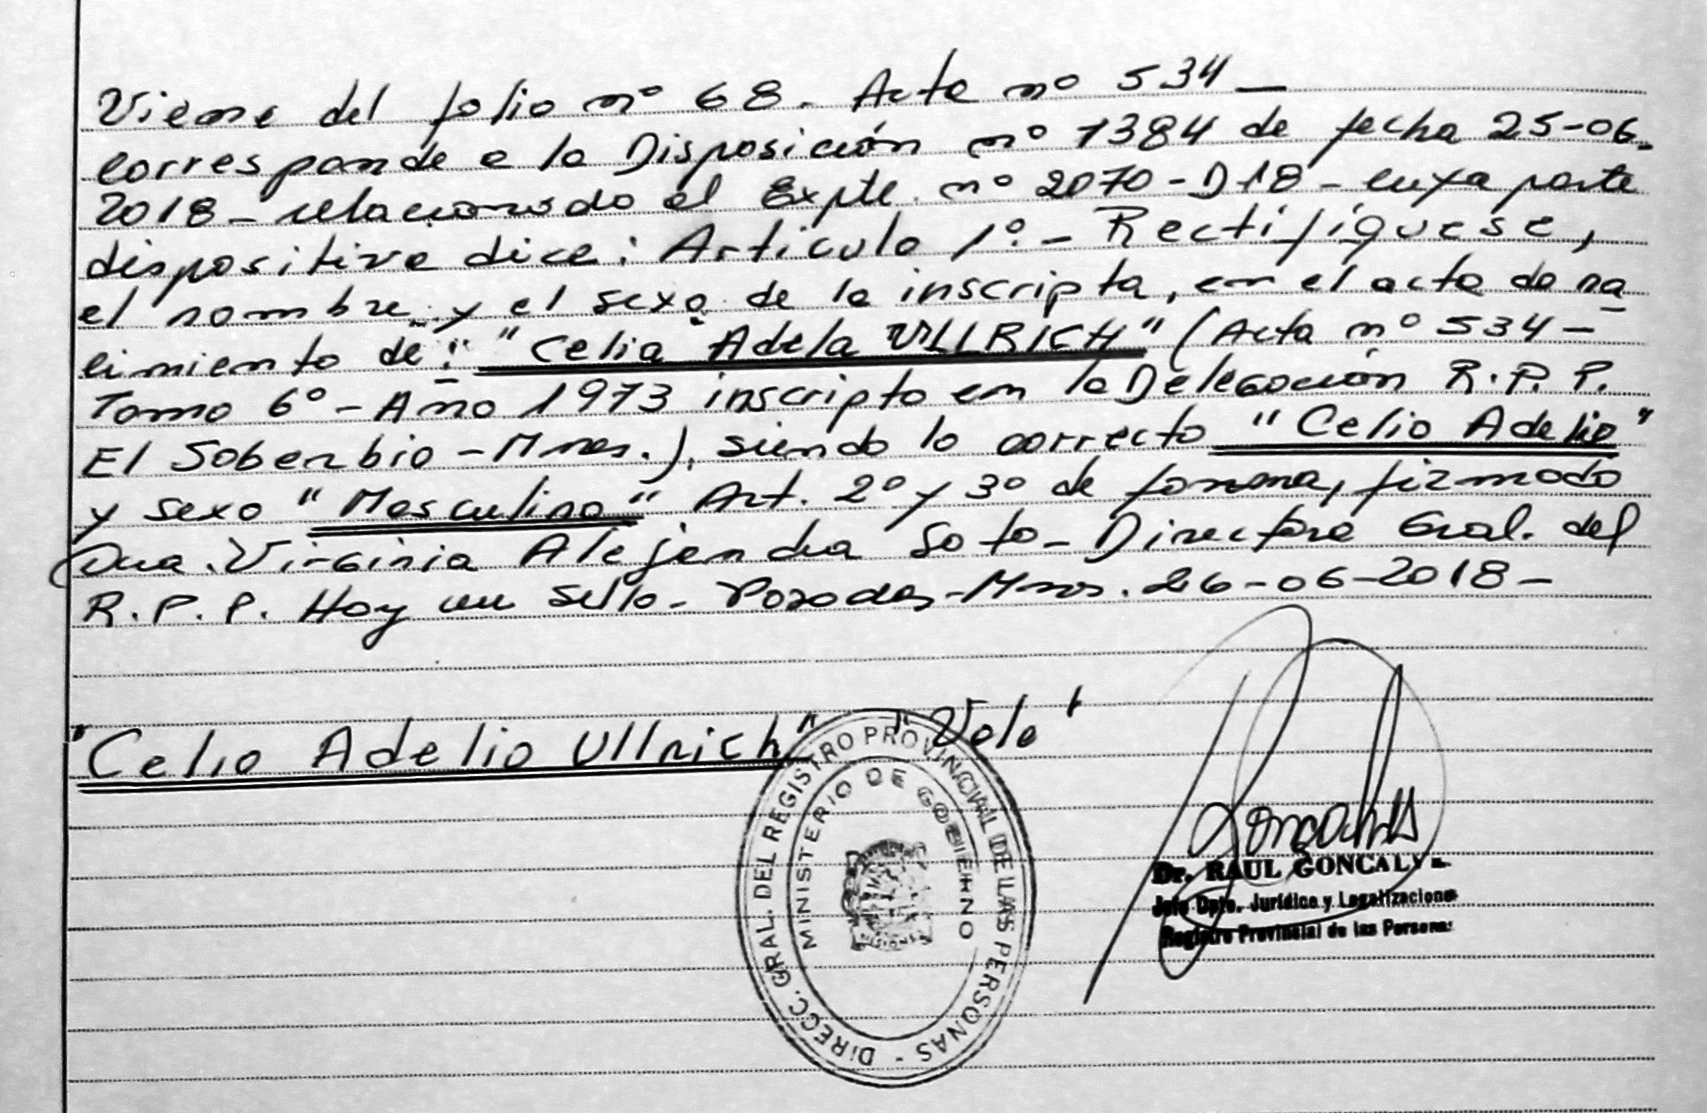 Viene del folio nº 68. Acta nº 534 —
Corresponde a la Disposición nº 1384 de fecha 25-06-
2018 - relacionado al Expte. nº 2070-D18 - cuya parte
dispositiva dice: Artículo 1º.- Rectifíquese,
el nombre y el sexo de la inscripta, en el acta de na
cimiento de: "Celia Adela ULLRICH" (Acta nº 534 -
Tomo 6º - Año 1973 inscripto en la Delegación R.P.P.
El Soberbio - Mnes.), siendo lo correcto "Celio Adelio"
y sexo "Masculino" Art. 2º y 3º de forma, firmado
Dra. Virginia Alejandra Soto - Directora Gral. del
R.P.P. Hay un sello - Posadas - Mnes. 26-06-2018 -
"Celio Adelio Ullrich" "Vale"
DIRECC. GRAL. DEL REGISTRO PROVINCIAL DE LAS PERSONAS -
MINISTERIO DE GOBIERNO
MISIONES
Dr. RAUL GONCALVES
Jefe Dpto. Jurídico y Legalizacione
Registro Provincial de las Persona